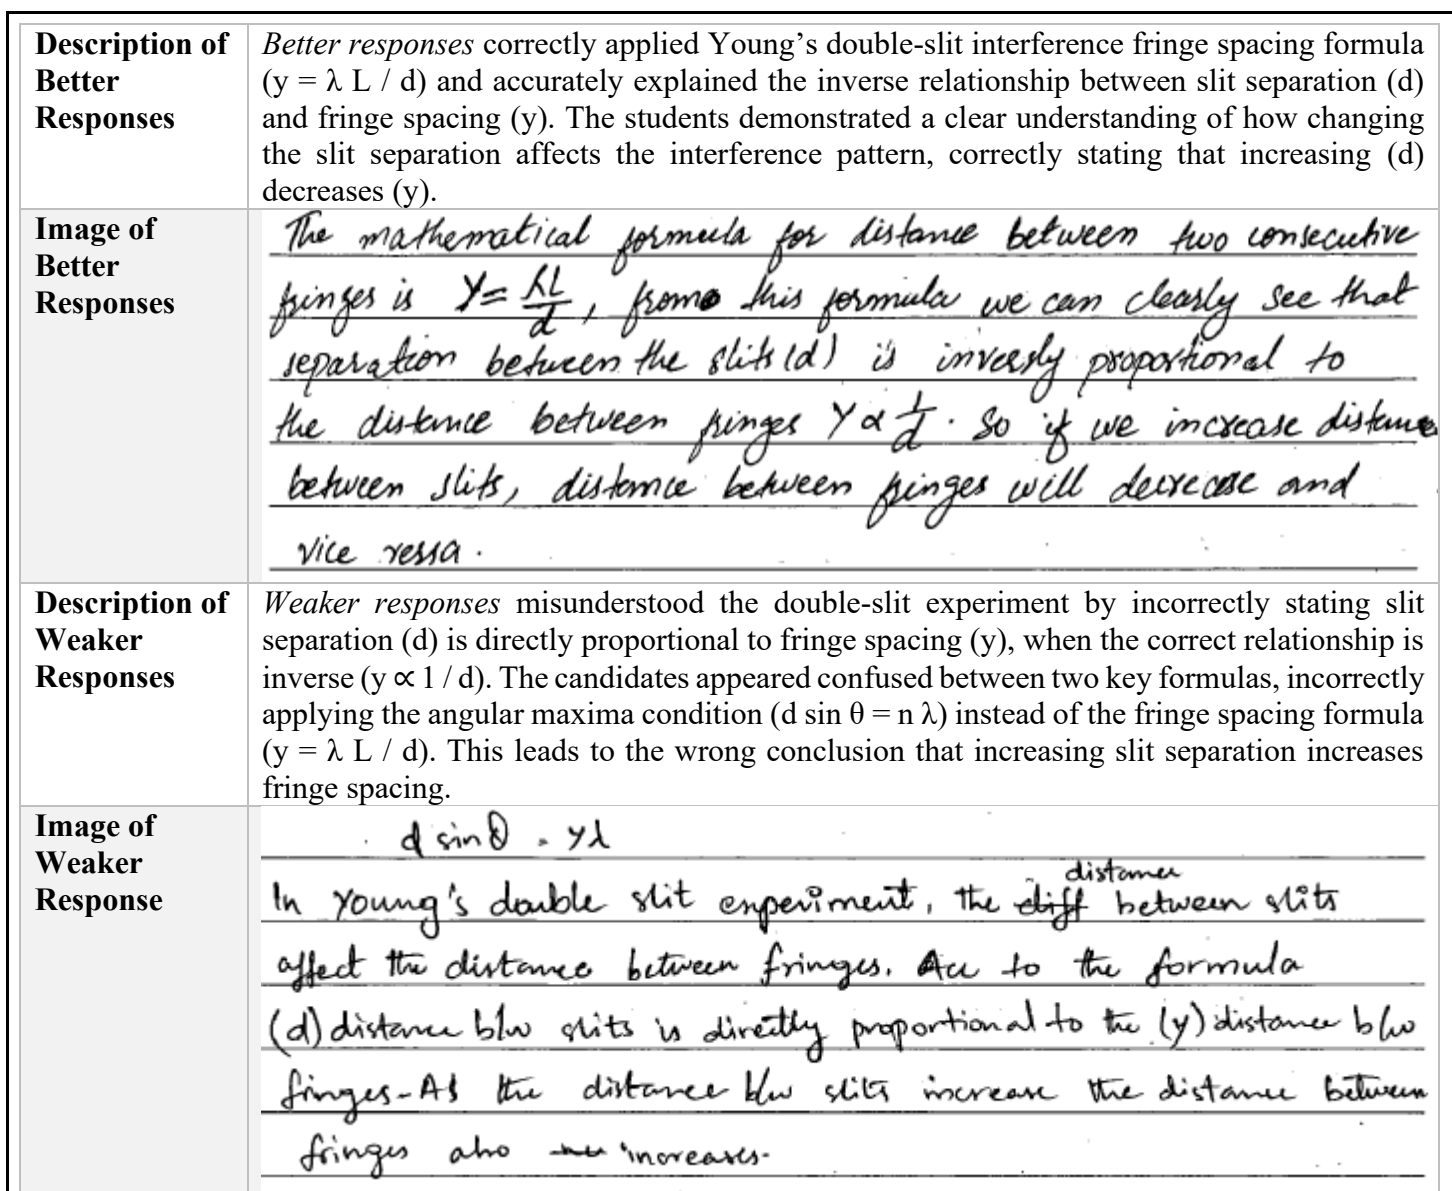 Description of Better Responses
Better responses correctly applied Young's double-slit interference fringe spacing formula
(y = λ L / d) and accurately explained the inverse relationship between slit separation (d)
and fringe spacing (y). The students demonstrated a clear understanding of how changing
the slit separation affects the interference pattern, correctly stating that increasing (d)
decreases (y).
Image of Better Responses
The mathematical formula for distance between two consecutive
fringes is Y = λL/d, from this formula we can clearly see that
separation between the slits (d) is inversly proportional to
the distance between fringes Y ∝ 1/d. So if we increase distance
between slits, distance between fringes will decrease and
vice vessa.
Description of Weaker Responses
Weaker responses misunderstood the double-slit experiment by incorrectly stating slit
separation (d) is directly proportional to fringe spacing (y), when the correct relationship is
inverse (y ∝ 1 / d). The candidates appeared confused between two key formulas, incorrectly
applying the angular maxima condition (d sin θ = n λ) instead of the fringe spacing formula
(y = λ L / d). This leads to the wrong conclusion that increasing slit separation increases
fringe spacing.
Image of Weaker Response
d sin θ = yλ
In Young's double slit experiment, the distance between slits
affect the distance between fringes. Acc to the formula
(d) distance b/w slits is directly proportional to the (y) distance b/w
fringes - As the distance b/w slits increase the distance between
fringes also increases.